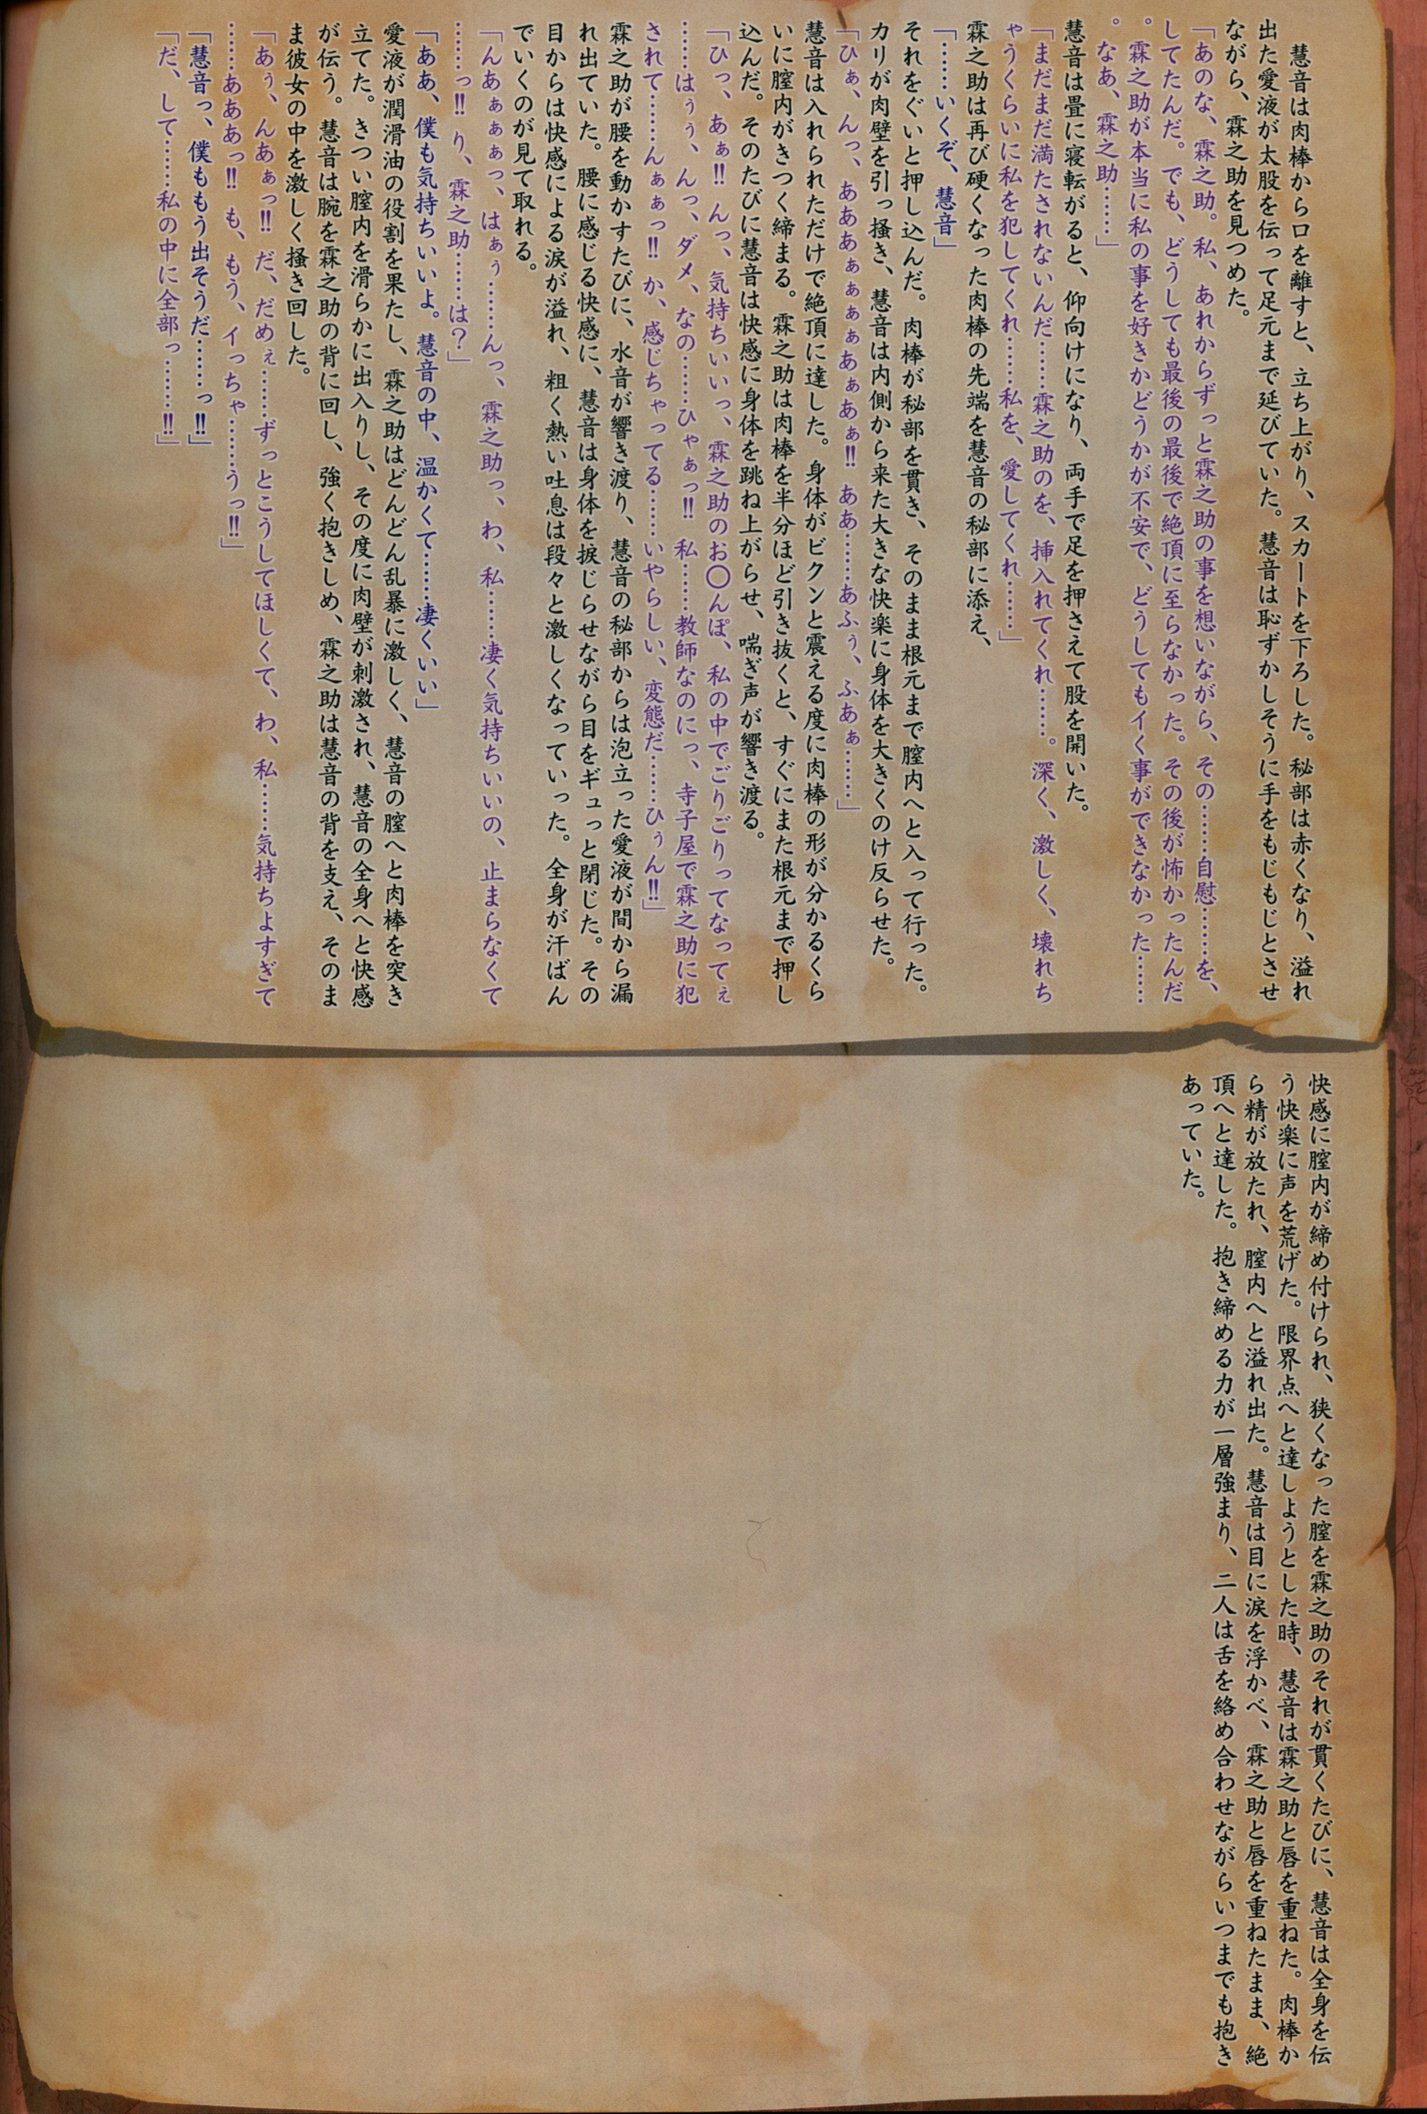 慧音は肉棒から口を離すと、立ち上がり、スカートを下ろした。秘部は赤くなり、溢れ
出た愛液が太股を伝って足元まで延びていた。慧音は恥ずかしそうに手をもじもじとさせ
ながら、霖之助を見つめた。
「あのな、霖之助。私、あれからずっと霖之助の事を想いながら、その……自慰……を、
してたんだ。でも、どうしても最後の最後で絶頂に至らなかった。その後が怖かったんだ
。霖之助が本当に私の事を好きかどうかが不安で、どうしてもイく事ができなかった……
。なあ、霖之助……」
慧音は畳に寝転がると、仰向けになり、両手で足を押さえて股を開いた。
「まだまだ満たされないんだ……霖之助のを、挿入れてくれ……。深く、激しく、壊れち
ゃうくらいに私を犯してくれ……私を、愛してくれ……」
霖之助は再び硬くなった肉棒の先端を慧音の秘部に添え、
「……いくぞ、慧音」
それをぐいと押し込んだ。肉棒が秘部を貫き、そのまま根元まで膣内へと入って行った。
カリが肉壁を引っ掻き、慧音は内側から来た大きな快楽に身体を大きくのけ反らせた。
「ひぁ、んっ、あああぁぁぁぁあぁあぁ!!　ああ……あふぅ、ふあぁ……」
慧音は入れられただけで絶頂に達した。身体がビクンと震える度に肉棒の形が分かるくら
いに膣内がきつく締まる。霖之助は肉棒を半分ほど引き抜くと、すぐにまた根元まで押し
込んだ。そのたびに慧音は快感に身体を跳ね上がらせ、喘ぎ声が響き渡る。
「ひっ、あぁ!!　んっ、気持ちいいっ、霖之助のお〇んぽ、私の中でごりごりってなってぇ
……はぅぅ、んっ、ダメ、なの……ひゃぁっ!!　私……教師なのにっ、寺子屋で霖之助に犯
されて……んぁぁっ!!　か、感じちゃってる……いやらしい、変態だ……ひぅん!!」
霖之助が腰を動かすたびに、水音が響き渡り、慧音の秘部からは泡立った愛液が間から漏
れ出ていた。腰に感じる快感に、慧音は身体を捩じらせながら目をギュっと閉じた。その
目からは快感による涙が溢れ、粗く熱い吐息は段々と激しくなっていった。全身が汗ばん
でいくのが見て取れる。
「んあぁぁぁっ、はぁぅ……んっ、霖之助っ、わ、私……凄く気持ちいいの、止まらなくて
……っ!!　り、霖之助……は？」
「ああ、僕も気持ちいいよ。慧音の中、温かくて……凄くいい」
愛液が潤滑油の役割を果たし、霖之助はどんどん乱暴に激しく、慧音の膣へと肉棒を突き
立てた。きつい膣内を滑らかに出入りし、その度に肉壁が刺激され、慧音の全身へと快感
が伝う。慧音は腕を霖之助の背に回し、強く抱きしめ、霖之助は慧音の背を支え、そのま
ま彼女の中を激しく掻き回した。
「あぅ、んあぁっ!!　だ、だめぇ……ずっとこうしてほしくて、わ、私……気持ちよすぎて
……あああっ!!　も、もう、イっちゃ……うっ!!」
「慧音っ、僕ももう出そうだ……っ!!」
「だ、して……私の中に全部っ……!!」
快感に膣内が締め付けられ、狭くなった膣を霖之助のそれが貫くたびに、慧音は全身を伝
う快楽に声を荒げた。限界点へと達しようとした時、慧音は霖之助と唇を重ねた。肉棒か
ら精が放たれ、膣内へと溢れ出た。慧音は目に涙を浮かべ、霖之助と唇を重ねたまま、絶
頂へと達した。抱き締める力が一層強まり、二人は舌を絡め合わせながらいつまでも抱き
あっていた。